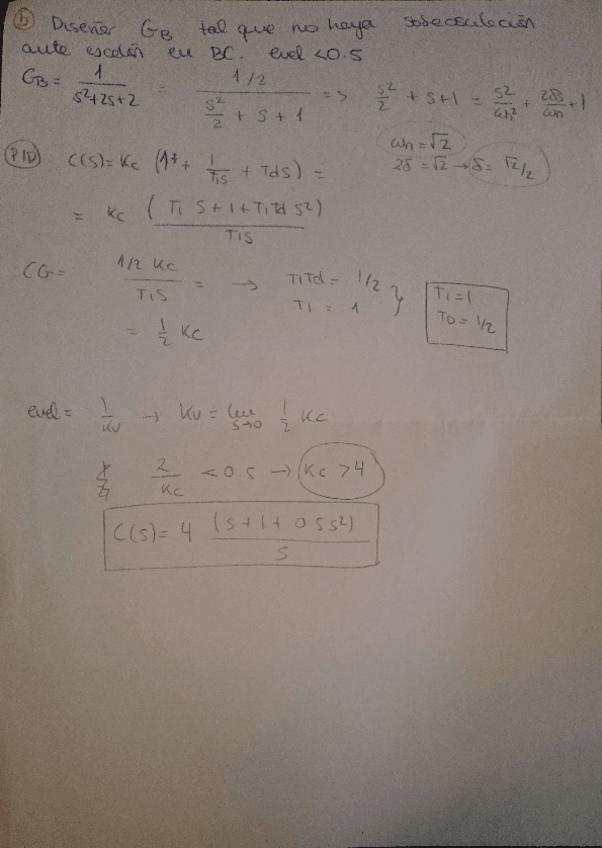 b) Diseñar GB tal que no haya sobreoscilación
ante escalón en BC. evel <0.5
GB = 1/(s²+2s+2) = (1/2)/(s²/2 + s + 1) => s²/2 + s+1 = s²/ωn² + 2δs/ωn + 1
ωn = √2
2δ = √2 → δ = √2/2
PID C(s) = Kc (1 + 1/(Tis) + Tds) =
= Kc (Ti s+1+TiTd s²)/(Tis)
CG = (1/2 Kc)/(Tis) = → TiTd = 1/2 } Ti = 1
Ti = 1 TD = 1/2
= 1/2 Kc
evel = 1/Kv → Kv = lim s→0 1/2 Kc
2/Kc <0.5 → Kc >4
C(s) = 4 (s+1+0.5s²)/s